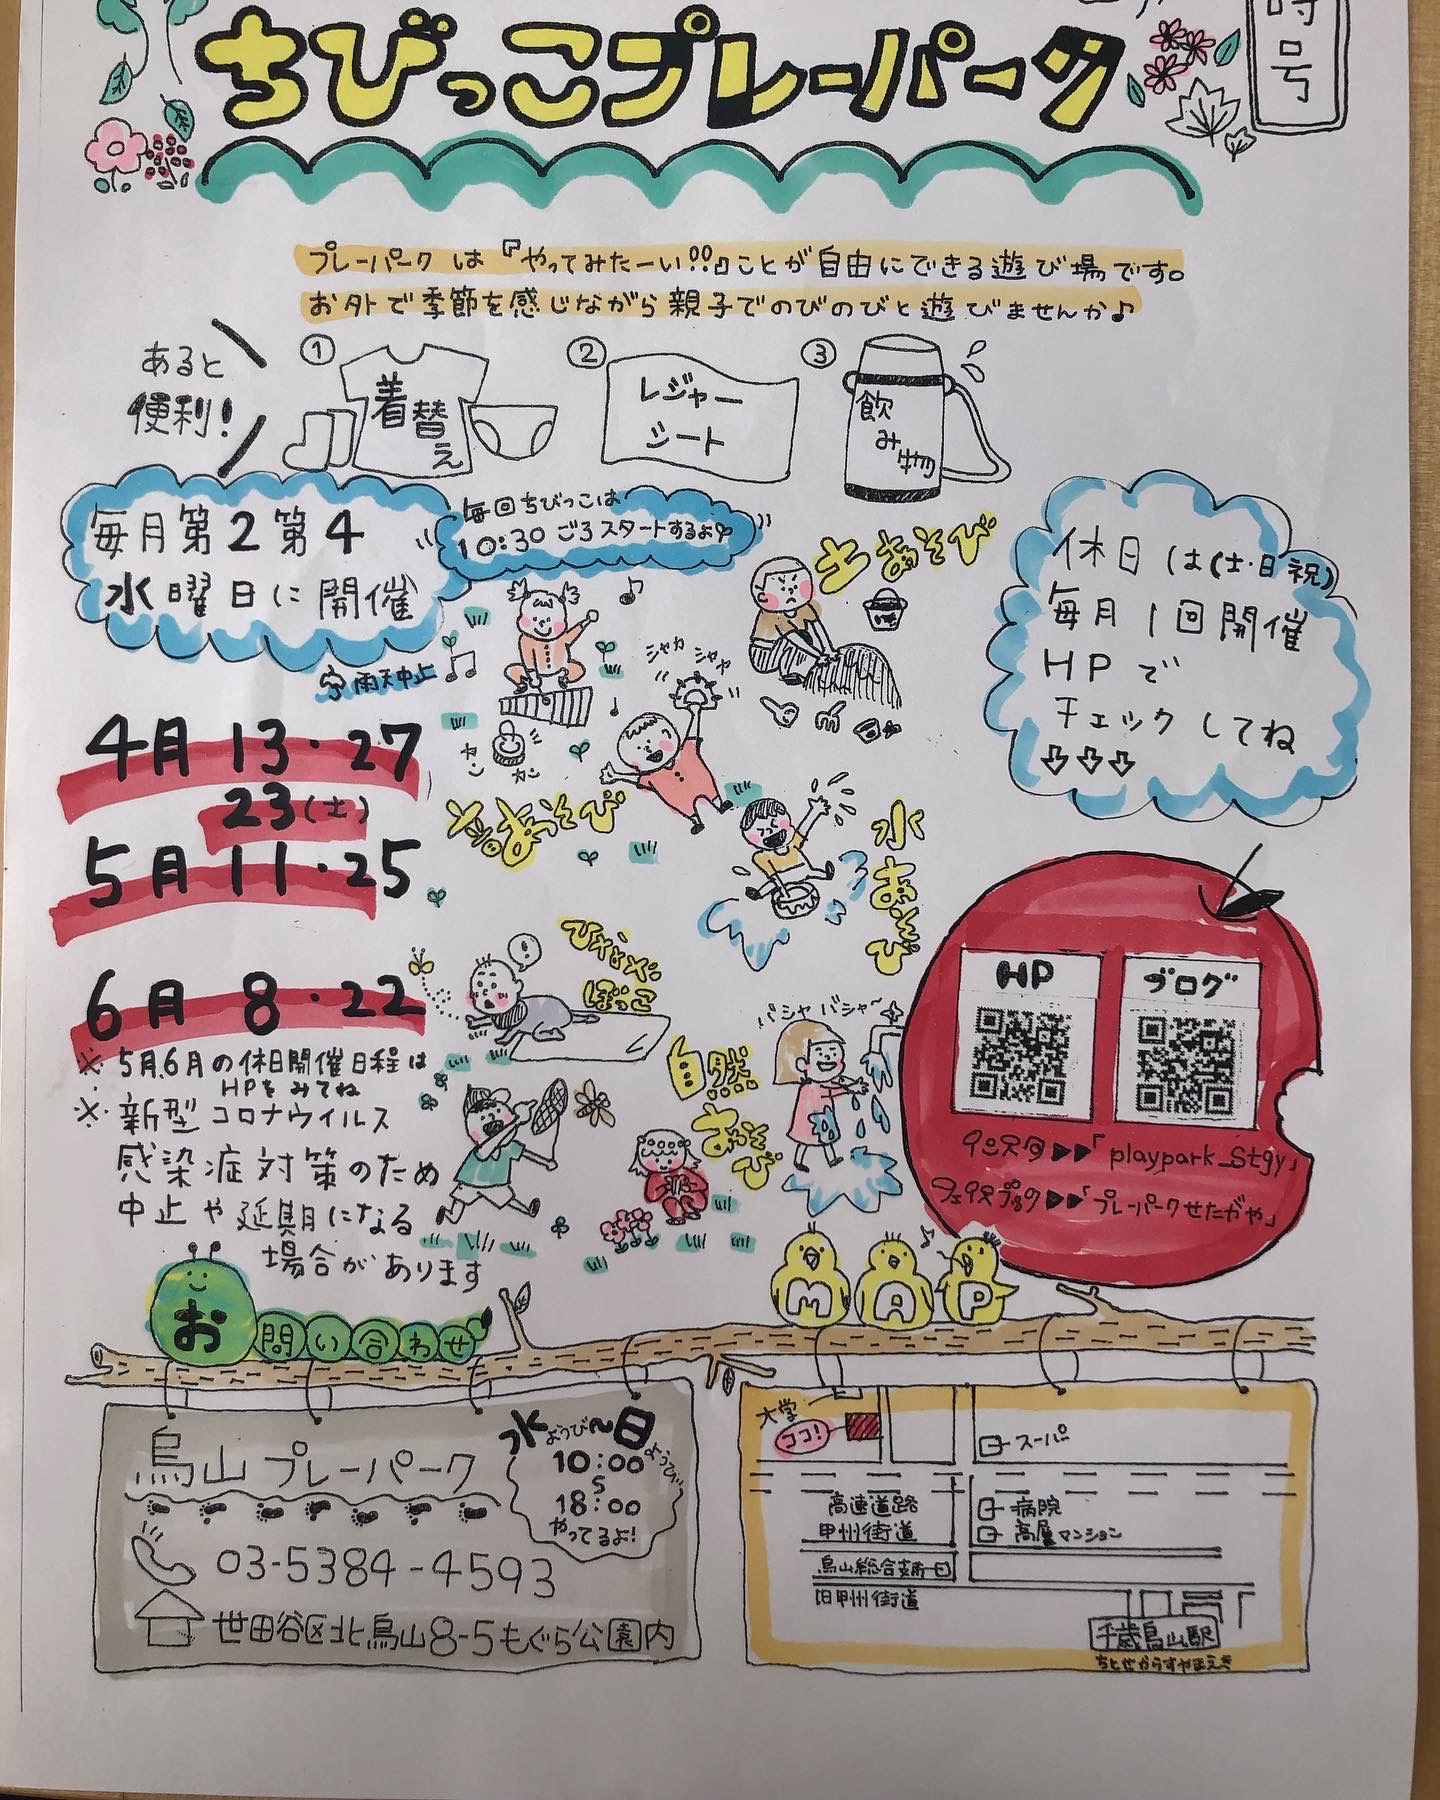 時号
ちびっこプレーパーク
プレーパークは『やってみたーい!!』ことが自由にできる遊び場です。
お外で季節を感じながら親子でのびのびと遊びませんか♪
あると
便利!
① 着替え
② レジャーシート
③ 飲み物
毎月第2第4
水曜日に開催
毎回ちびっこは
10:30ごろスタートするよ
雨天中止
休日は(土・日祝)
毎月1回開催
HPで
チェックしてね
⇩⇩⇩
土あそび
シャカシャカ
カンカン
音あそび
水あそび
4月 13・27
23(土)
5月 11・25
6月 8・22
※5月、6月の休日開催日程は
HPをみてね
※新型コロナウイルス
感染症対策のため
中止や延期になる
場合があります
!
ぼっこ
自然あそび
バシャバシャ~
HP
ブログ
インスタ▶▶「playpark_stgy」
フェイスブック▶▶「プレーパークせたがや」
お問い合わせ
MAP
烏山プレーパーク
水ようび~日ようび
10:00
18:00
やってるよ!
03-5384-4593
世田谷区北烏山8-5もぐら公園内
大学
ココ!
スーパー
高速道路
甲州街道
病院
高層マンション
烏山総合支所
旧甲州街道
千歳烏山駅
ちとせからすやまえき